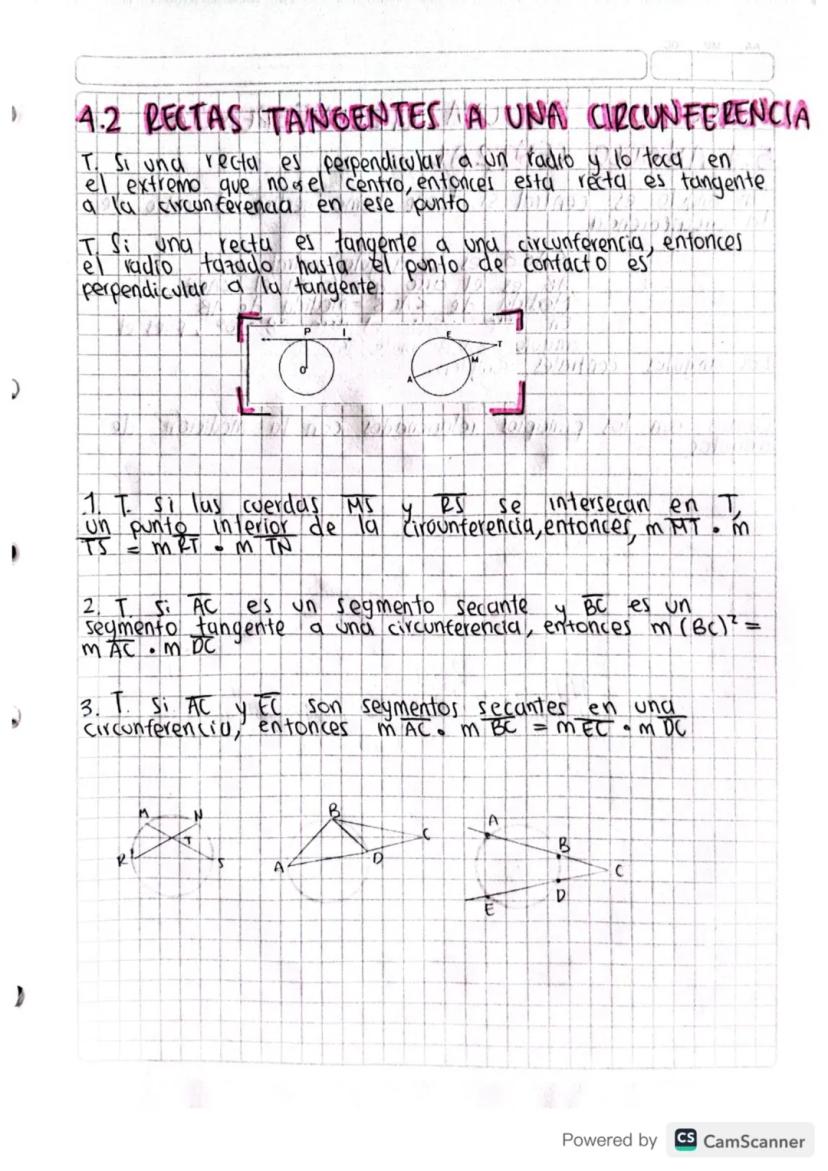 4.2 RECTAS TANGENTES A UNA CIRCUNFERENCIA
T. Si una recta es perpendicular a un radio y lo toca en
el extremo que no es el centro, entonces esta recta es tangente
a la circunferencia en ese punto
T. Si una recta es tangente a una circunferencia, entonces
el radio tazado hasta el punto de contacto es
perpendicular a la tangente.
P l
O
F T M A
1. T. si las cuerdas MS y RS se intersecan en T,
un punto interior de la circunferencia, entonces, m MT • m
TS = m RT • m TN
2. T. Si AC es un segmento secante y BC es un
segmento tangente a una circunferencia, entonces m (BC)² =
m AC • m DC
3. T. Si AC y EC son segmentos secantes en una
circunferencia, entonces m AC • m BC = m EC • m DC
M N T R S
B C A D
A B C D E
Powered by CS CamScanner